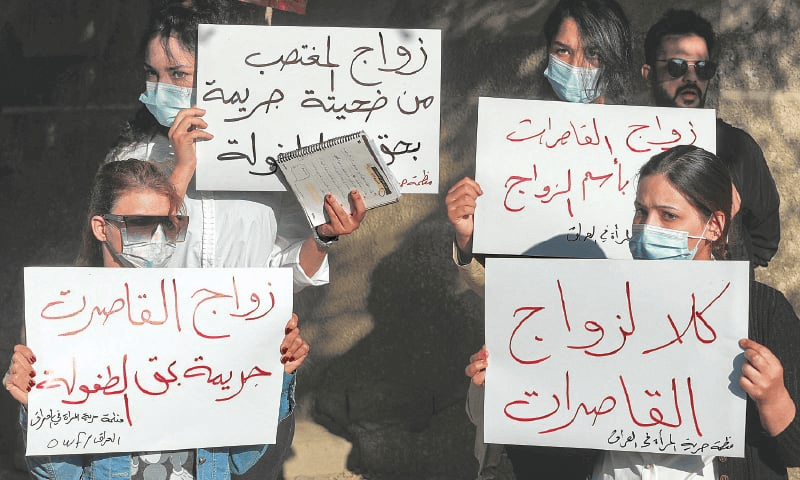 زواج المغتصب
من ضحيتة جريمة
بحق الطفولة
منظمة حر
زواج القاصرات
بأسم الزواج
المرأة في العراق
زواج القاصرت
جريمة بحق الطفولة
منظمة حرية المرأة في
العراق / owf
كلا لزواج
القاصرات
منظمة حرية المرأة في العراق